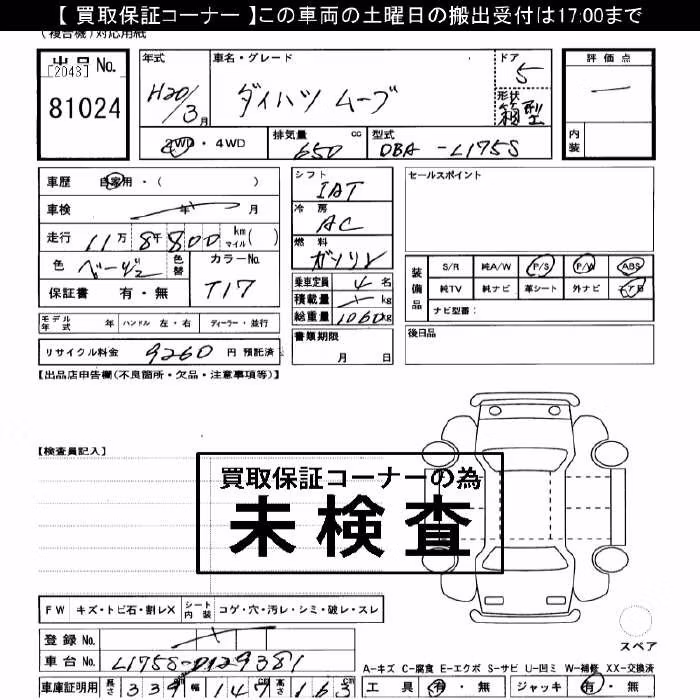 【 買取保証コーナー 】この車両の土曜日の搬出受付は17:00まで
(複合機)対応用紙
出品 No.
[2043]
81024
年式
H20/3月
車名・グレード
ダイハツ ムーブ
ドア
5
形状
箱型
評価点
—
内装
2WD ・ 4WD
排気量 cc
650
型式
DBA -L175S
車歴 自家用・( )
車検 年 月
走行 11万 8千 800 km マイル ( )
色 ベージュ 色替
カラーNo.
T17
保証書 有・無
シフト
IAT
冷房
AC
燃料
ガソリン
乗車定員 4 名
積載量 kg
総重量 1060 kg
書類期限
月 日
セールスポイント
装備品
S/R 純A/W P/S P/W ABS
純TV 純ナビ 革シート 外ナビ エアB
ナビ型番:
後日品
モデル年式 年 ハンドル 左・右 ディーラー・並行
リサイクル料金 9260 円 預託済
【出品店申告欄(不良箇所・欠品・注意事項等)】
【検査員記入】
買取保証コーナーの為
未検査
FW キズ・トビ石・割レX シート内装 コゲ・穴・汚レ・シミ・破レ・スレ
登録 No.
車台 No. L175S-0129381
車庫証明用 長さ 339 cm 幅 147 cm 高さ 163 cm
スペア
A-キズ C-腐食 E-エクボ S-サビ U-凹ミ W-補修 XX-交換済
工具 有・無 ジャッキ 有・無